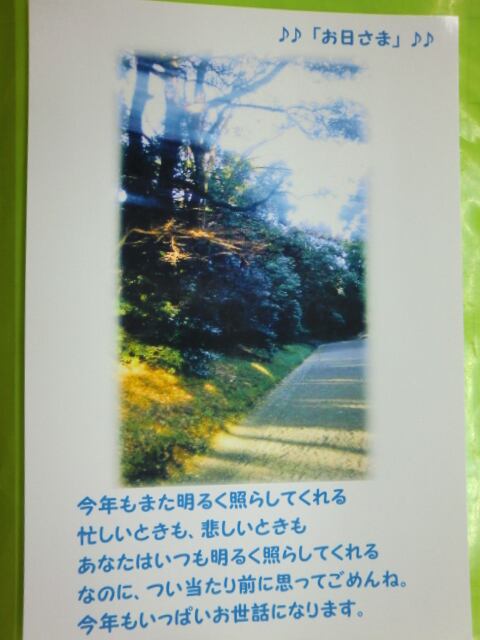 ♪♪「お日さま」♪♪
今年もまた明るく照らしてくれる
忙しいときも、悲しいときも
あなたはいつも明るく照らしてくれる
なのに、つい当たり前に思ってごめんね。
今年もいっぱいお世話になります。